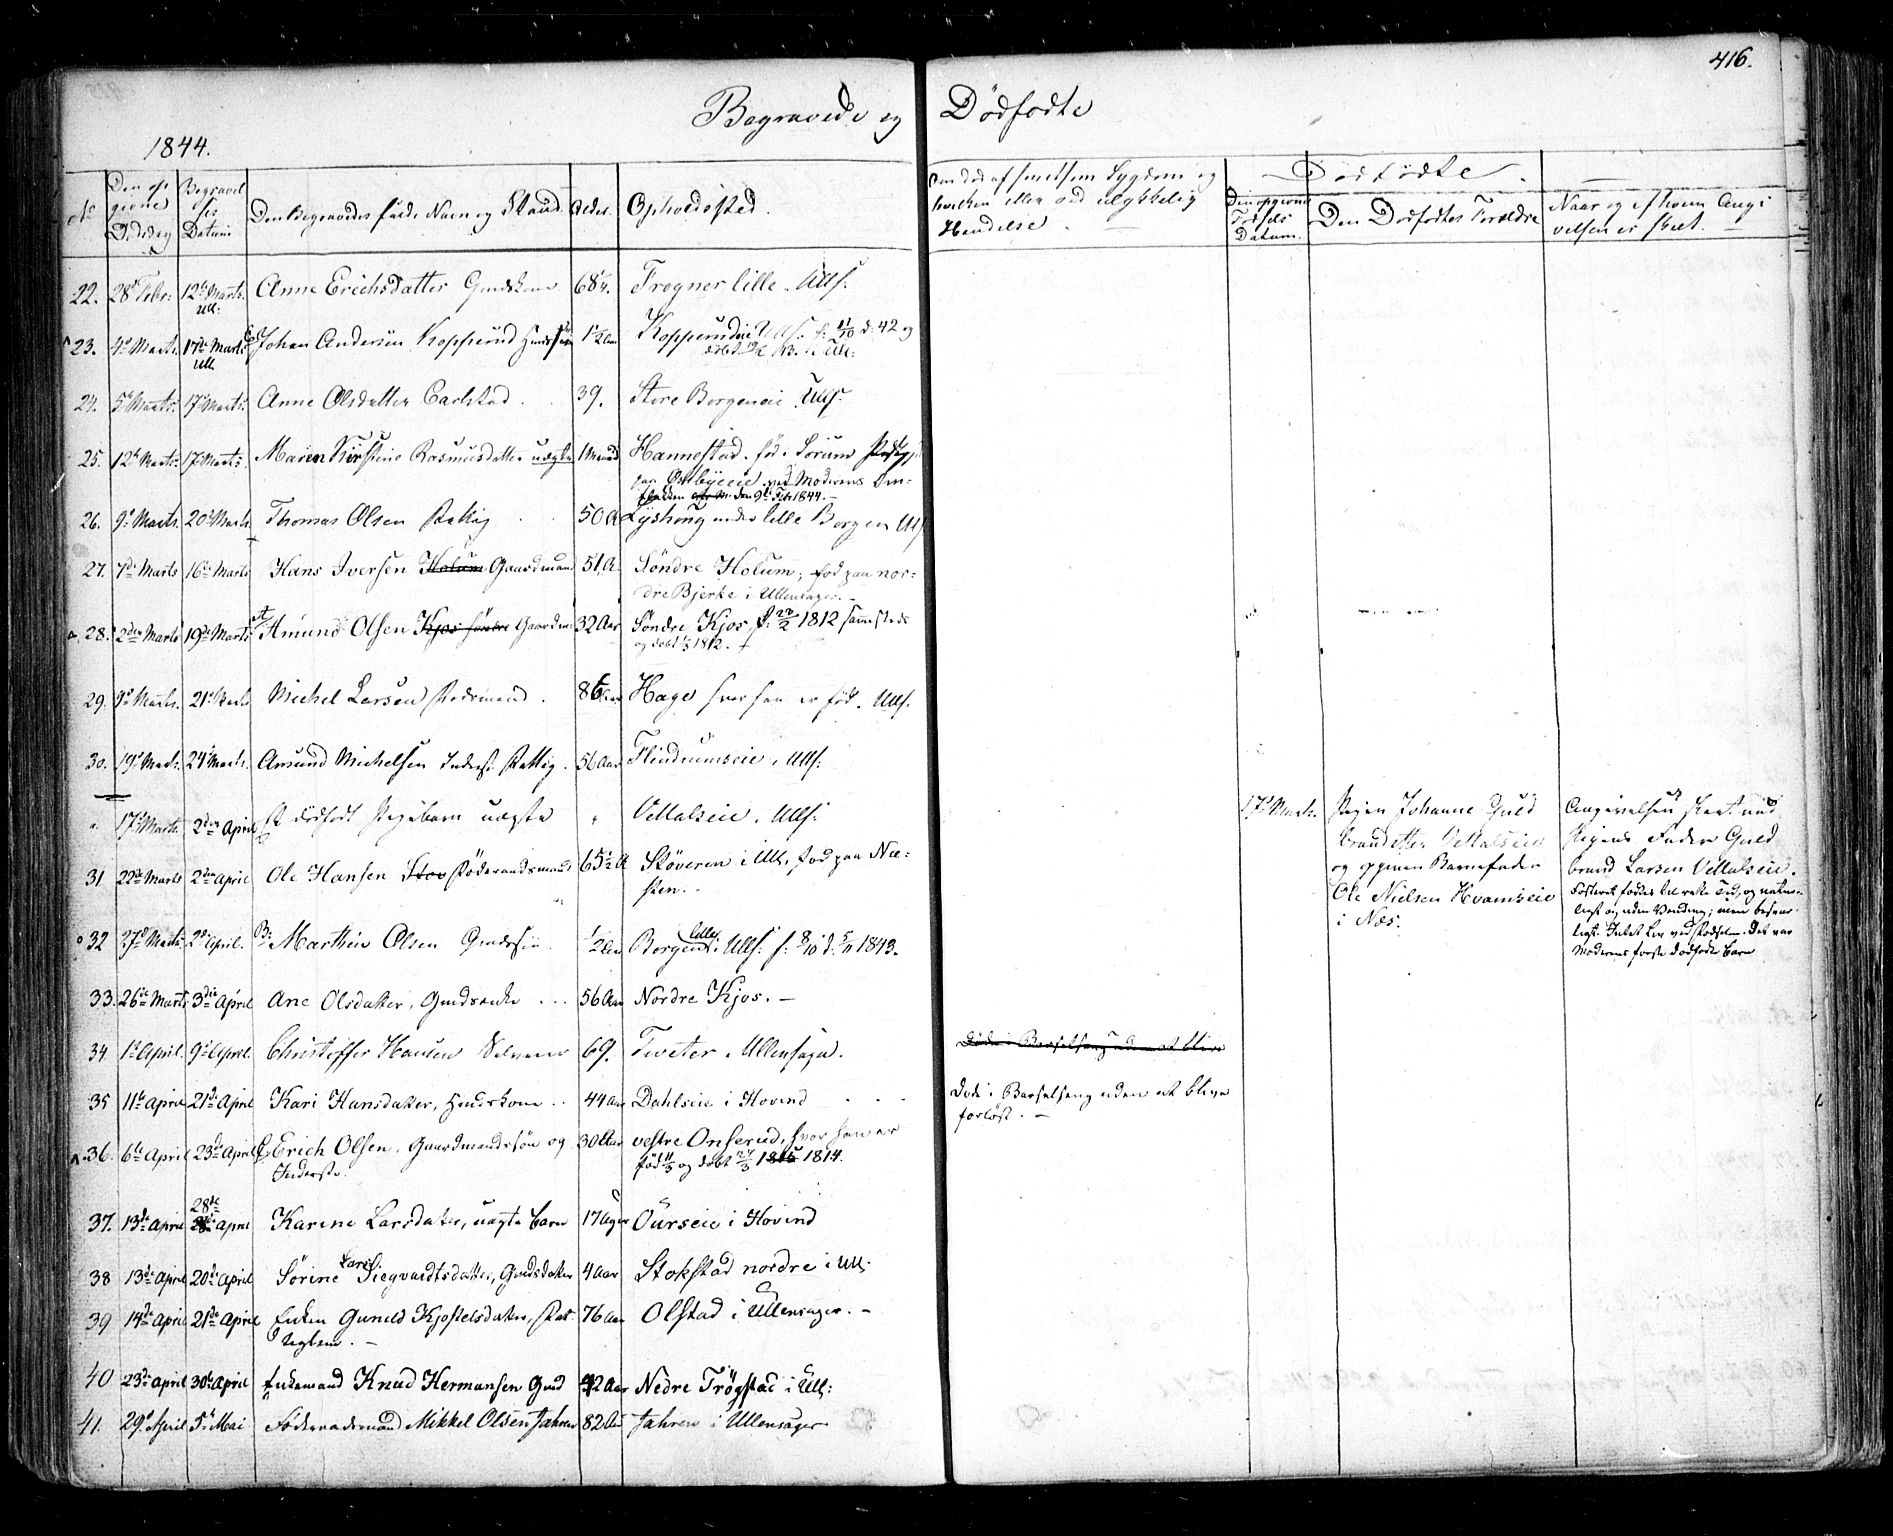 416.
Begravede og Dødfødte
1844.
No Den opgivne Dødsdag Begravelses Datum Den Begravedes fulde Navn og Stand. Alder. Opholdssted.
Om død af smitsom Sygdom og hvilken eller ved ulykkelig Hendelse.
Dødfødte.
Den opgivne Fødsels Datum. Den Dødfødtes Forældre Naar og af hvem Angivelsen er skeet.
22. 28d Febr: 12te Marts. Ull: Anne Erichsdatter Gmdskone 68 Frogner lille. Ulls:
23. 4de Marts. 17de Marts Ull. Johan Andersen Kopperud 1½ Aar Kopperudeie Ulls. f: 11/10 d: 42 og
24. 5te Marts. 17de Marts. Anne Olsdatter Carlstad . . 39. Store Borgeneie Ulls.
25. 12te Marts. 17de Marts Maren Kirstine Rasmusdatter uægte 1 Maaned Hannestad. fød i Sørum
paa Østbyeeie ved Moderens
den 9de Feb 1844.
26. 9de Marts. 20de Marts Thomas Olsen Fattig . . 50 A Lyshoug under lille Borgen Ulls
27. 7de Marts 16de Marts Hans Iversen Holum Gaardmand 51 A. Søndre Holum, fød paa nor-
dre Bjerke i Ullensager.
28. 2den Marts 19de Marts Amund Olsen Kjos søndre Gaardm: 32 Aar Søndre Kjos, f: 27/2 1812 samsteds
og døbt 1/3 1812.
29. 9de Marts. 21de Marts Michel Larsen . 86 Aar Hage hvor han er fød. Ulls.
30. 19de Marts. 24de Marts. Amund Michelsen Inderst Fattig. 56 Aar Flindrumseie, Ulls:
17de Marts. 2den April Et dødfødt Pigebarn uægte " Vellalseie, Ulls:
17de Marts: Pigen Johanne Guld
brandsdatter Vellalseie
og opgiven Barnefader
Ole Nielsen Hvamseie
i Næs.
Angivelsen skeet ved
Pigens Fader Guld
brand Larsen Vellalseie.
Fosteret fødtes til rette Tid, og natur-
ligt og uden Vending; men besvær-
ligt. Intet Liv ved Fødselen. Det var
Moderens første dødfødte Barn
31 22de Marts 2den April Ole Hansen Stov Føderaadsmand 65½ A Støveren i Ull, fød paa Næ-
sten.
32 27de Marts. 2de April. B: Marthin Olsen Gmdssøn . ½ Aar Borgen lille, Ulls: f: 8/10 d: 5/11 1843.
33. 26de Marts 3die April Ane Olsdatter, Gmdsenke . . . 56 Aar Nordre Kjos. —
34 1ste April. 9de April. Christoffer Hansen Selveier 69. Tveter i Ullensager.
Døde i Barselseng uden at blive
35 11te April 21de April Kari Hansdatter, Huuskone . . 44 Aar Dahlseie i Hovind
Døde i Barselseng uden at blive
forløst. —
36. 6te April 23de April Erich Olsen, Gaardmandssøn og 30 Aar vestre Onserud, hvor han er
Inderste. født 11/3 og døbt 27/3 1815 1814.
37. 13de April 28de April Karine Larsdatter, uægte Barn 17 Uger Ourseie i Hovind
38 13de April 20de April Sørine Larine Siegvardtsdatter, Gmdsdatter 4 Aar Stokstad nordre i Ull:
39 14de April 21de April Enken Gunild Kjostelsdatter, Fat- 76 Aar Olstad i Ullensager. —
40 23de April 30te April Enkemand Knud Hermansen Gmd 92 Aar Nedre Trøgstad i Ull:
41. 29de April 5te Mai Føderaadsmand Mikkel Olsen Jahren 82 Aar Jahren i Ullensager